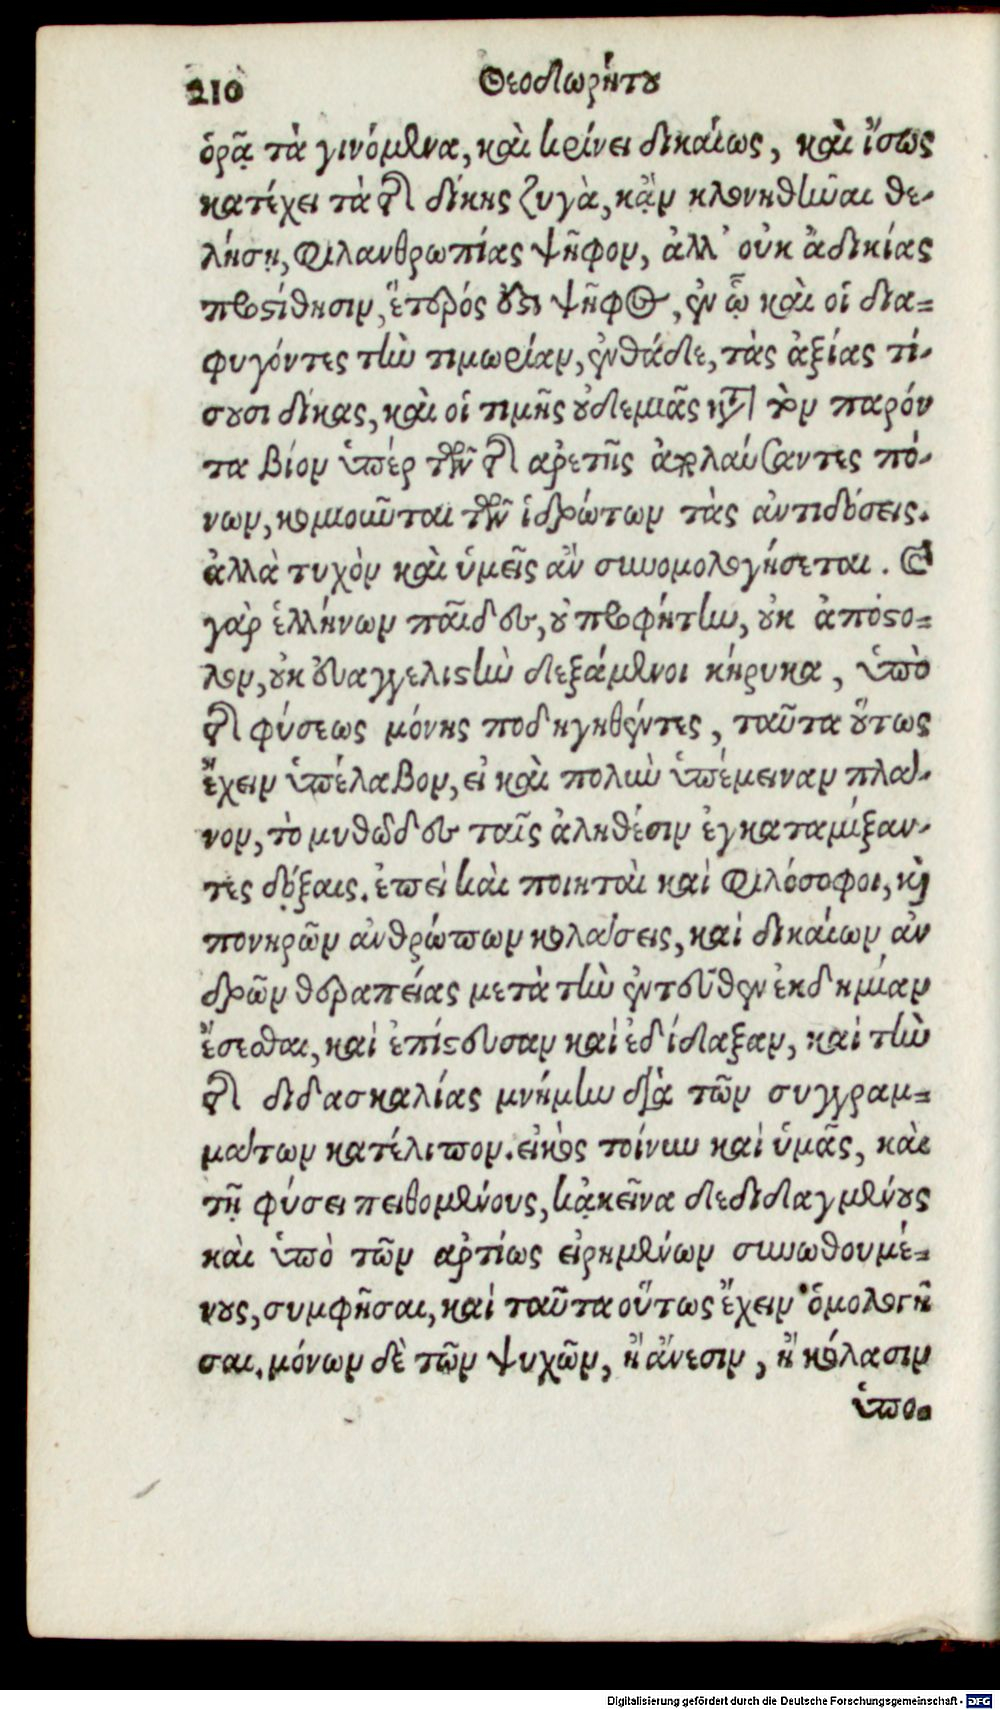 210 Θεοδωρήτου
ὁρᾷ τὰ γινόμενα, καὶ κρίνει δικαίως, καὶ ἴσως
κατέχει τὰ τῆς δίκης ζυγὰ, κᾂν κλονηθῆναι θε-
λήσῃ, φιλανθρωπίας ψῆφον, ἀλλ' οὐκ ἀδικίας
προστίθησιν, ἕτερός ἐστι ψῆφος, ἐν ᾧ καὶ οἱ δια-
φυγόντες τὴν τιμωρίαν, ἐνθάδε, τὰς ἀξίας τί-
σουσι δίκας, καὶ οἱ τιμῆς οὐδεμιᾶς κατὰ τὸν παρόν
τα βίον ὑπέρ τῶν τῆς ἀρετῆς ἀπολαύσαντες πό-
νων, κομιοῦνται τῶν ἱδρώτων τὰς ἀντιδόσεις.
ἀλλὰ τυχὸν καὶ ὑμεῖς ἂν συνομολογήσεται. οἱ
γὰρ ἑλλήνων παῖδες, οὐ προφήτην, οὐκ ἀπόστο-
λον, οὐκ εὐαγγελιστὴν δεξάμενοι κήρυκα, ὑπὸ
τῆς φύσεως μόνης ποδηγηθέντες, ταῦτα οὕτως
ἔχειν ὑπέλαβον, εἰ καὶ πολὺν ὑπέμειναν πλά-
νον, τὸ μυθῶδες ταῖς ἀληθέσιν ἐγκαταμίξαν-
τες δόξαις. ἐπεὶ καὶ ποιηταὶ καὶ φιλόσοφοι, καὶ
πονηρῶν ἀνθρώπων κολάσεις, καὶ δικαίων ἀν
δρῶν θεραπείας μετὰ τὴν ἐντεῦθεν ἐκδημίαν
ἔσεσθαι, καὶ ἐπίστευσαν καὶ ἐδίδαξαν, καὶ τὴν
τῆς διδασκαλίας μνήμην διὰ τῶν συγγραμ-
μάτων κατέλιπον. εἰκὸς τοίνυν καὶ ὑμᾶς, καὶ
τῇ φύσει πειθομένους, κᾀκεῖνα δεδιδαγμένους
καὶ ὑπὸ τῶν ἀρτίως εἰρημένων συνωθουμέ-
νους, συμφῆσαι, καὶ ταῦτα οὕτως ἔχειν ὁμολογῆ
σαι. μόνων δὲ τῶν ψυχῶν, ἢ ἄνεσιν, ἢ κόλασιν
ὑπο-
Digitalisierung gefördert durch die Deutsche Forschungsgemeinschaft - DFG